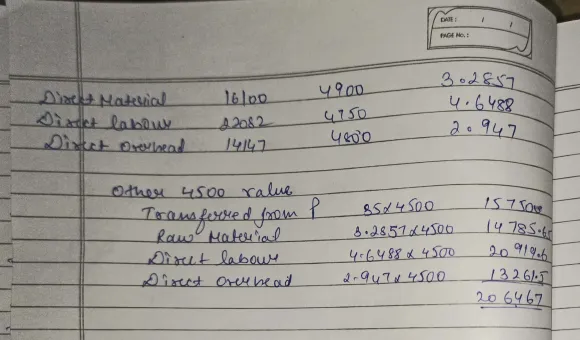 DATE: / /
PAGE No.:
Direct Material 16100 4900 3.2857
Direct labour 22082 4750 4.6488
Direct overhead 14147 4800 2.947
Other 4500 value
Transferred from P 35x4500 157500
Raw Material 3.2857x4500 14785.65
Direct labour 4.6488x4500 20919.6
Direct overhead 2.947x4500 13261.5
206467